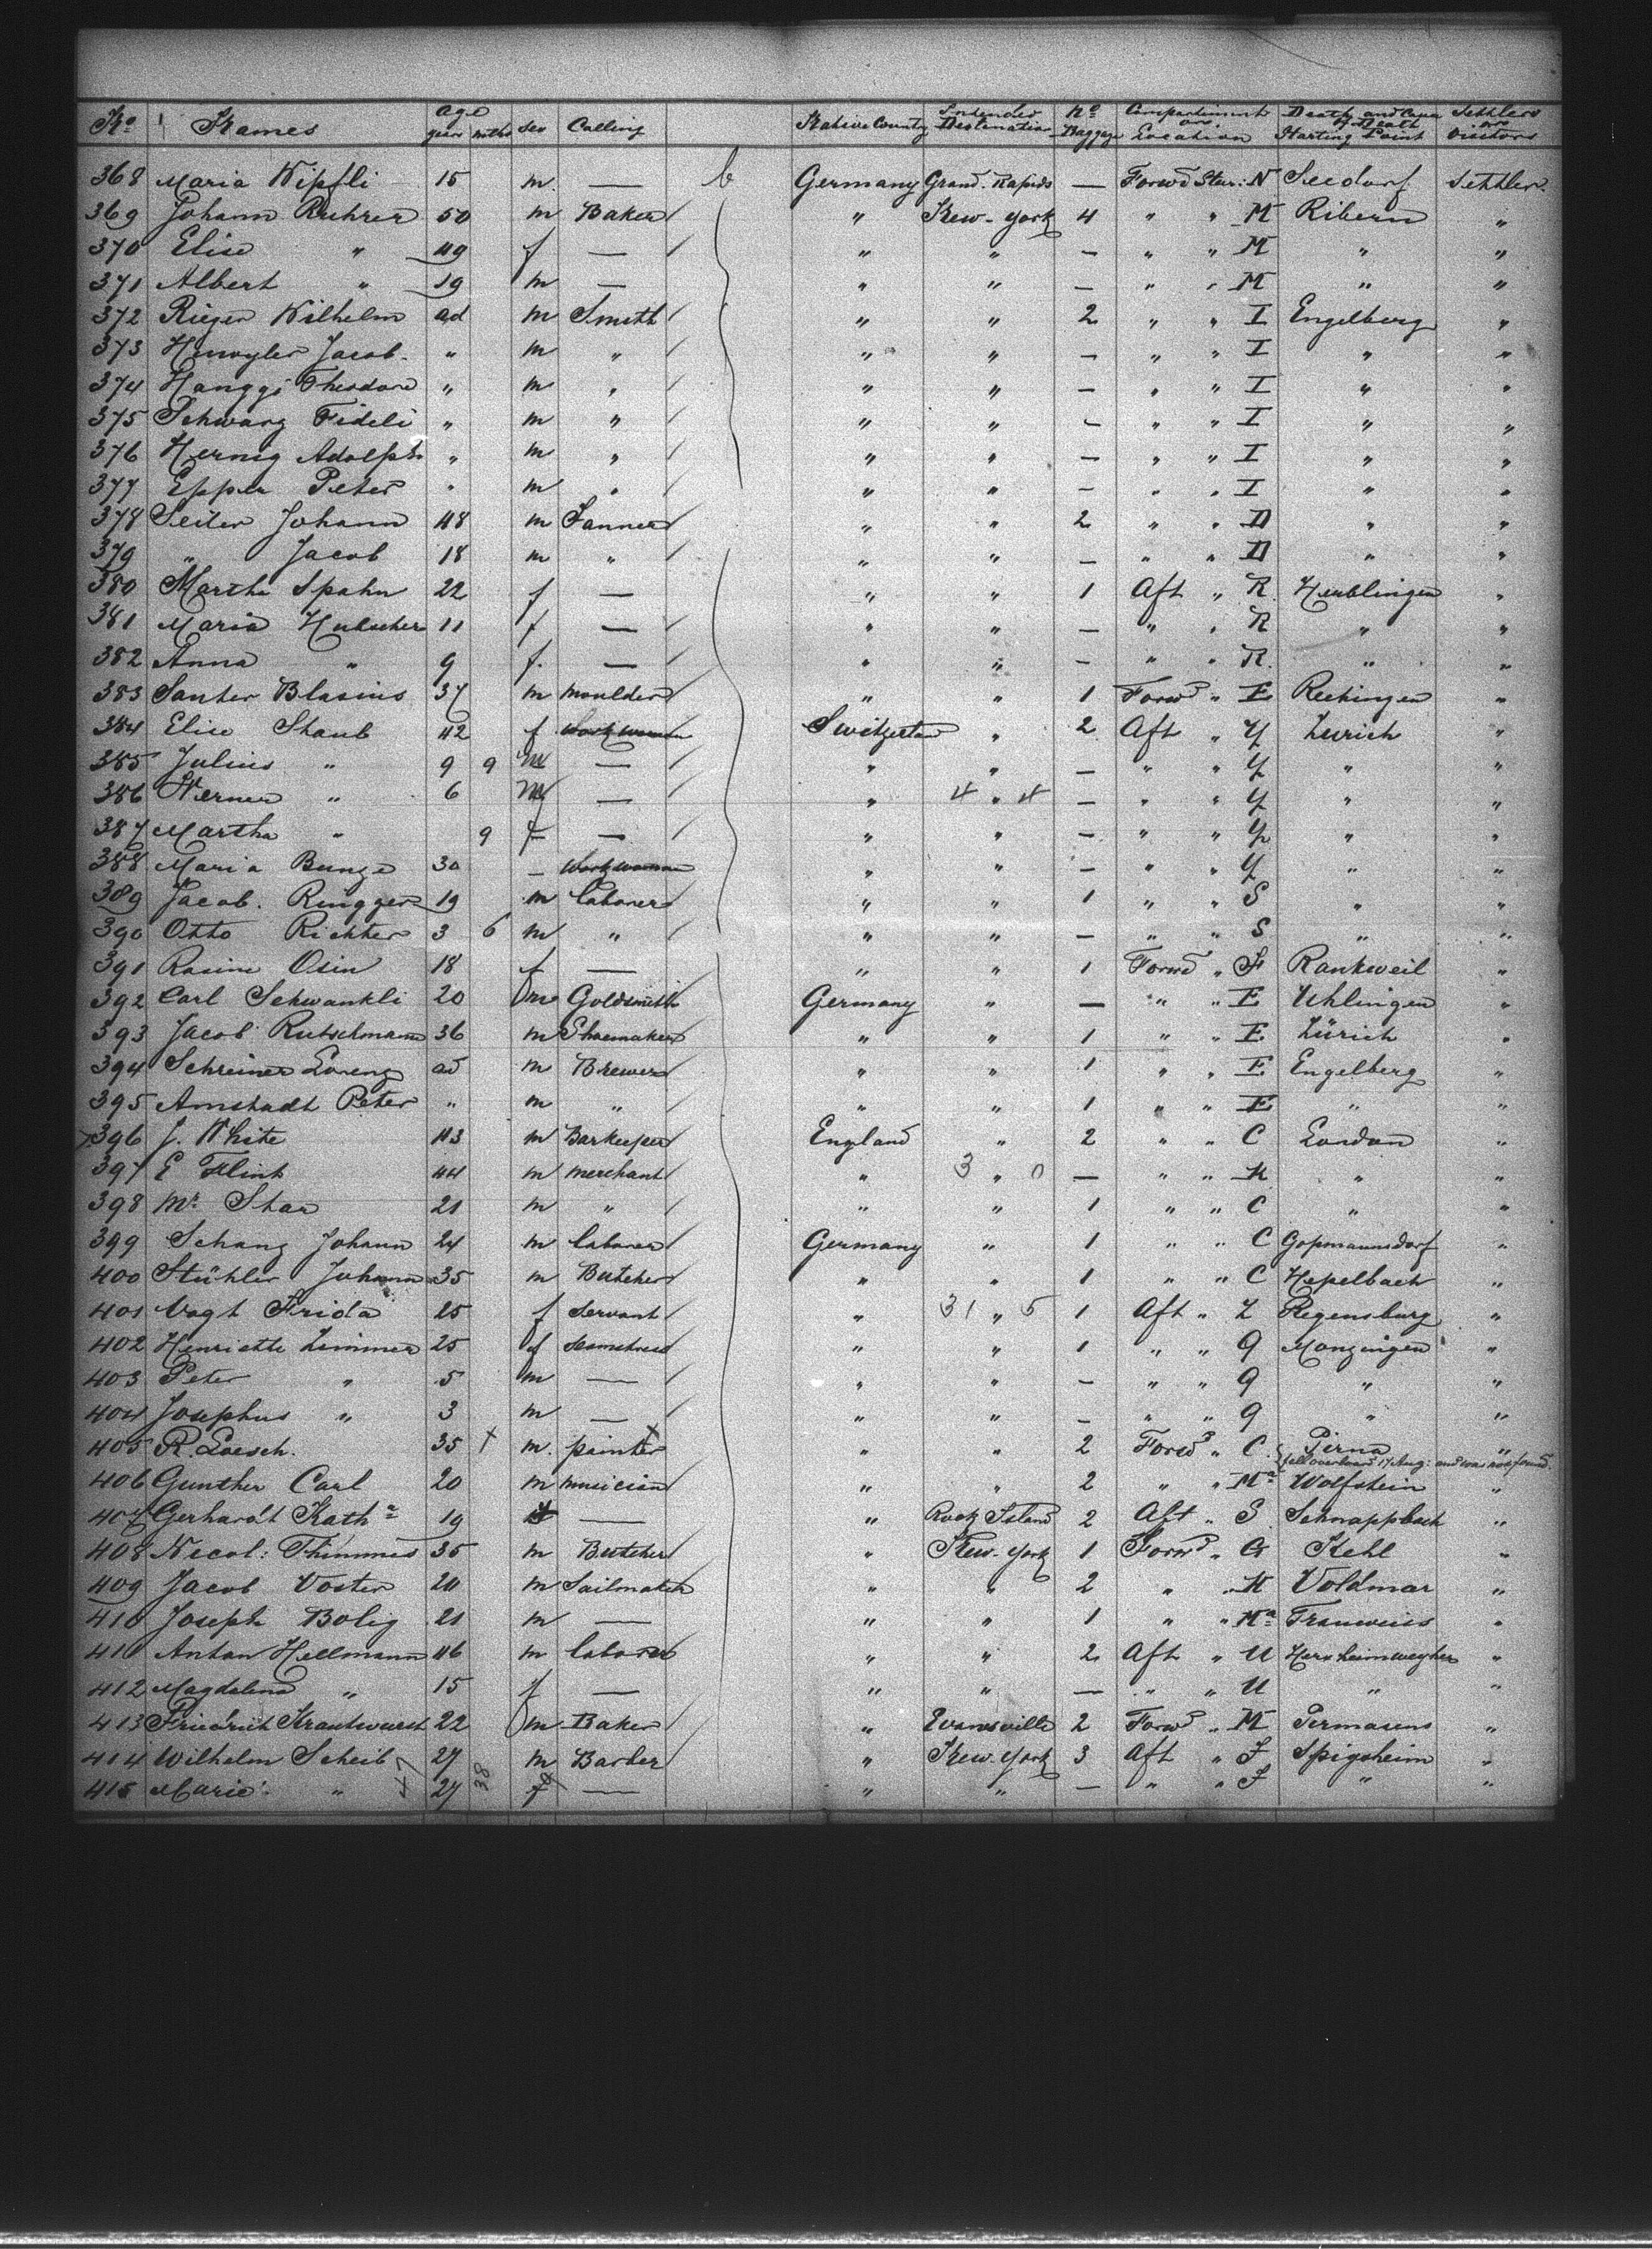 No Names Age years mths Sex Calling Native Country Intended Destination No Baggage Compartiment or Location Death and Cause of Death Starting Point Settlers or Visitors
368 Maria Wipfli 15 m. — b Germany Grand. Rapids — Forwd Ster: N Seedorf Settler.
369 Johann Ruhrer 50 m Baker " New-York 4 " " M Ribern "
370 Elise " 49 f — " " — " " M " "
371 Albert " 19 m — " " — " " M " "
372 Rieger Wilhelm ad m Smith " " 2 " " I Engelberg "
373 Jacob. " m " " " — " " I " "
374 Hanggi Theodore " m " " " — " " I " "
375 Schwarz Fideli " m " " " — " " I " "
376 Hernig Adolph " m " " " — " " I " "
377 Epper Peter " m " " " — " " I " "
378 Seiler Johann 48 m Tanner " " 2 " " D " "
379 " Jacob 18 m " " " — " " D " "
380 Martha Spahn 22 f — " " 1 Aft " R Heublingen "
381 Maria Hubscher 11 f — " " — " " R " "
382 Anna " 9 f. — " " — " " R. " "
383 Santer Blasius 37 m moulder " " 1 Forwd " E Reckingen "
384 Elise Staub 42 f Workwoman Switzerland " 2 Aft " Y Zurich "
385 Julius " 9 9 m — " " — " " Y " "
386 Werner " 6 m — " 4 " 4 — " " Y " "
387 Martha " 9 f — " " — " " Y " "
388 Maria Bunge 30 — Workwoman " " — " " Y " "
389 Jacob. Ringger 19 m laborer " " 1 " " S " "
390 Otto Richter 3 6 m " " " — " " S " "
391 Rosine Osin 18 f — " " 1 Forwd " F Rankweil "
392 Carl Schwankli 20 m Goldsmith Germany " — " " E Uhlingen "
393 Jacob Rutschmann 36 m Shoemaker " " 1 " " E Zürich "
394 Schreiner Lorenz ad m Brewer " " 1 " " E Engelberg "
395 Amstadt Peter " m " " " 1 " " E " "
396 J. White 43 m Barkeeper England " 2 " " C London "
397 E Flint 44 m merchant " 3 " 0 — " " K " "
398 Mr. Star 21 m " " " 1 " " C " "
399 Schanz Johann 24 m laborer Germany " 1 " " C Gopmannsdorf "
400 Stühler Johann 35 m Butcher " " 1 " " C Hepelbach "
401 Vogt Frida 25 f servant " 31 " 5 1 Aft " Z Regensburg "
402 Henriette Zimmer 25 f seamstress " " 1 " " 9 Monzingen "
403 Peter " 5 m — " " — " " 9 " "
404 Josephus " 3 m — " " — " " 9 " "
405 R. Loesch. 35 + m. painter " " 2 Forwd " C. Pirna "
fell overboard 17 Aug: and was not found.
406 Gunther Carl 20 m musician " " 2 " " Ma Wolfstein "
407 Gerhardt Katha 19 f — " Rock Island 2 Aft " S Schnappbach "
408 Nicol: Thimmes 35 m Butcher " New-York 1 Forwd " G Kehl "
409 Jacob Voster 20 m Sailmaker " " 2 " " K Voldmar "
410 Joseph Bolig 21 m — " " 1 " " Ma Frauweiss "
411 Anton Hellmann 46 m laborer " " 2 Aft " U Herxheimweyher "
412 Magdalena " 15 f — " " — " " U " "
413 Friedrich Krautwurst 22 m Baker " Evansville 2 Forwd " M Pirmasens "
414 Wilhelm Scheib 27 m Barber " New-York 3 Aft " F Spigsheim "
415 Marie " 47 27 38 f — " " — " " F " "